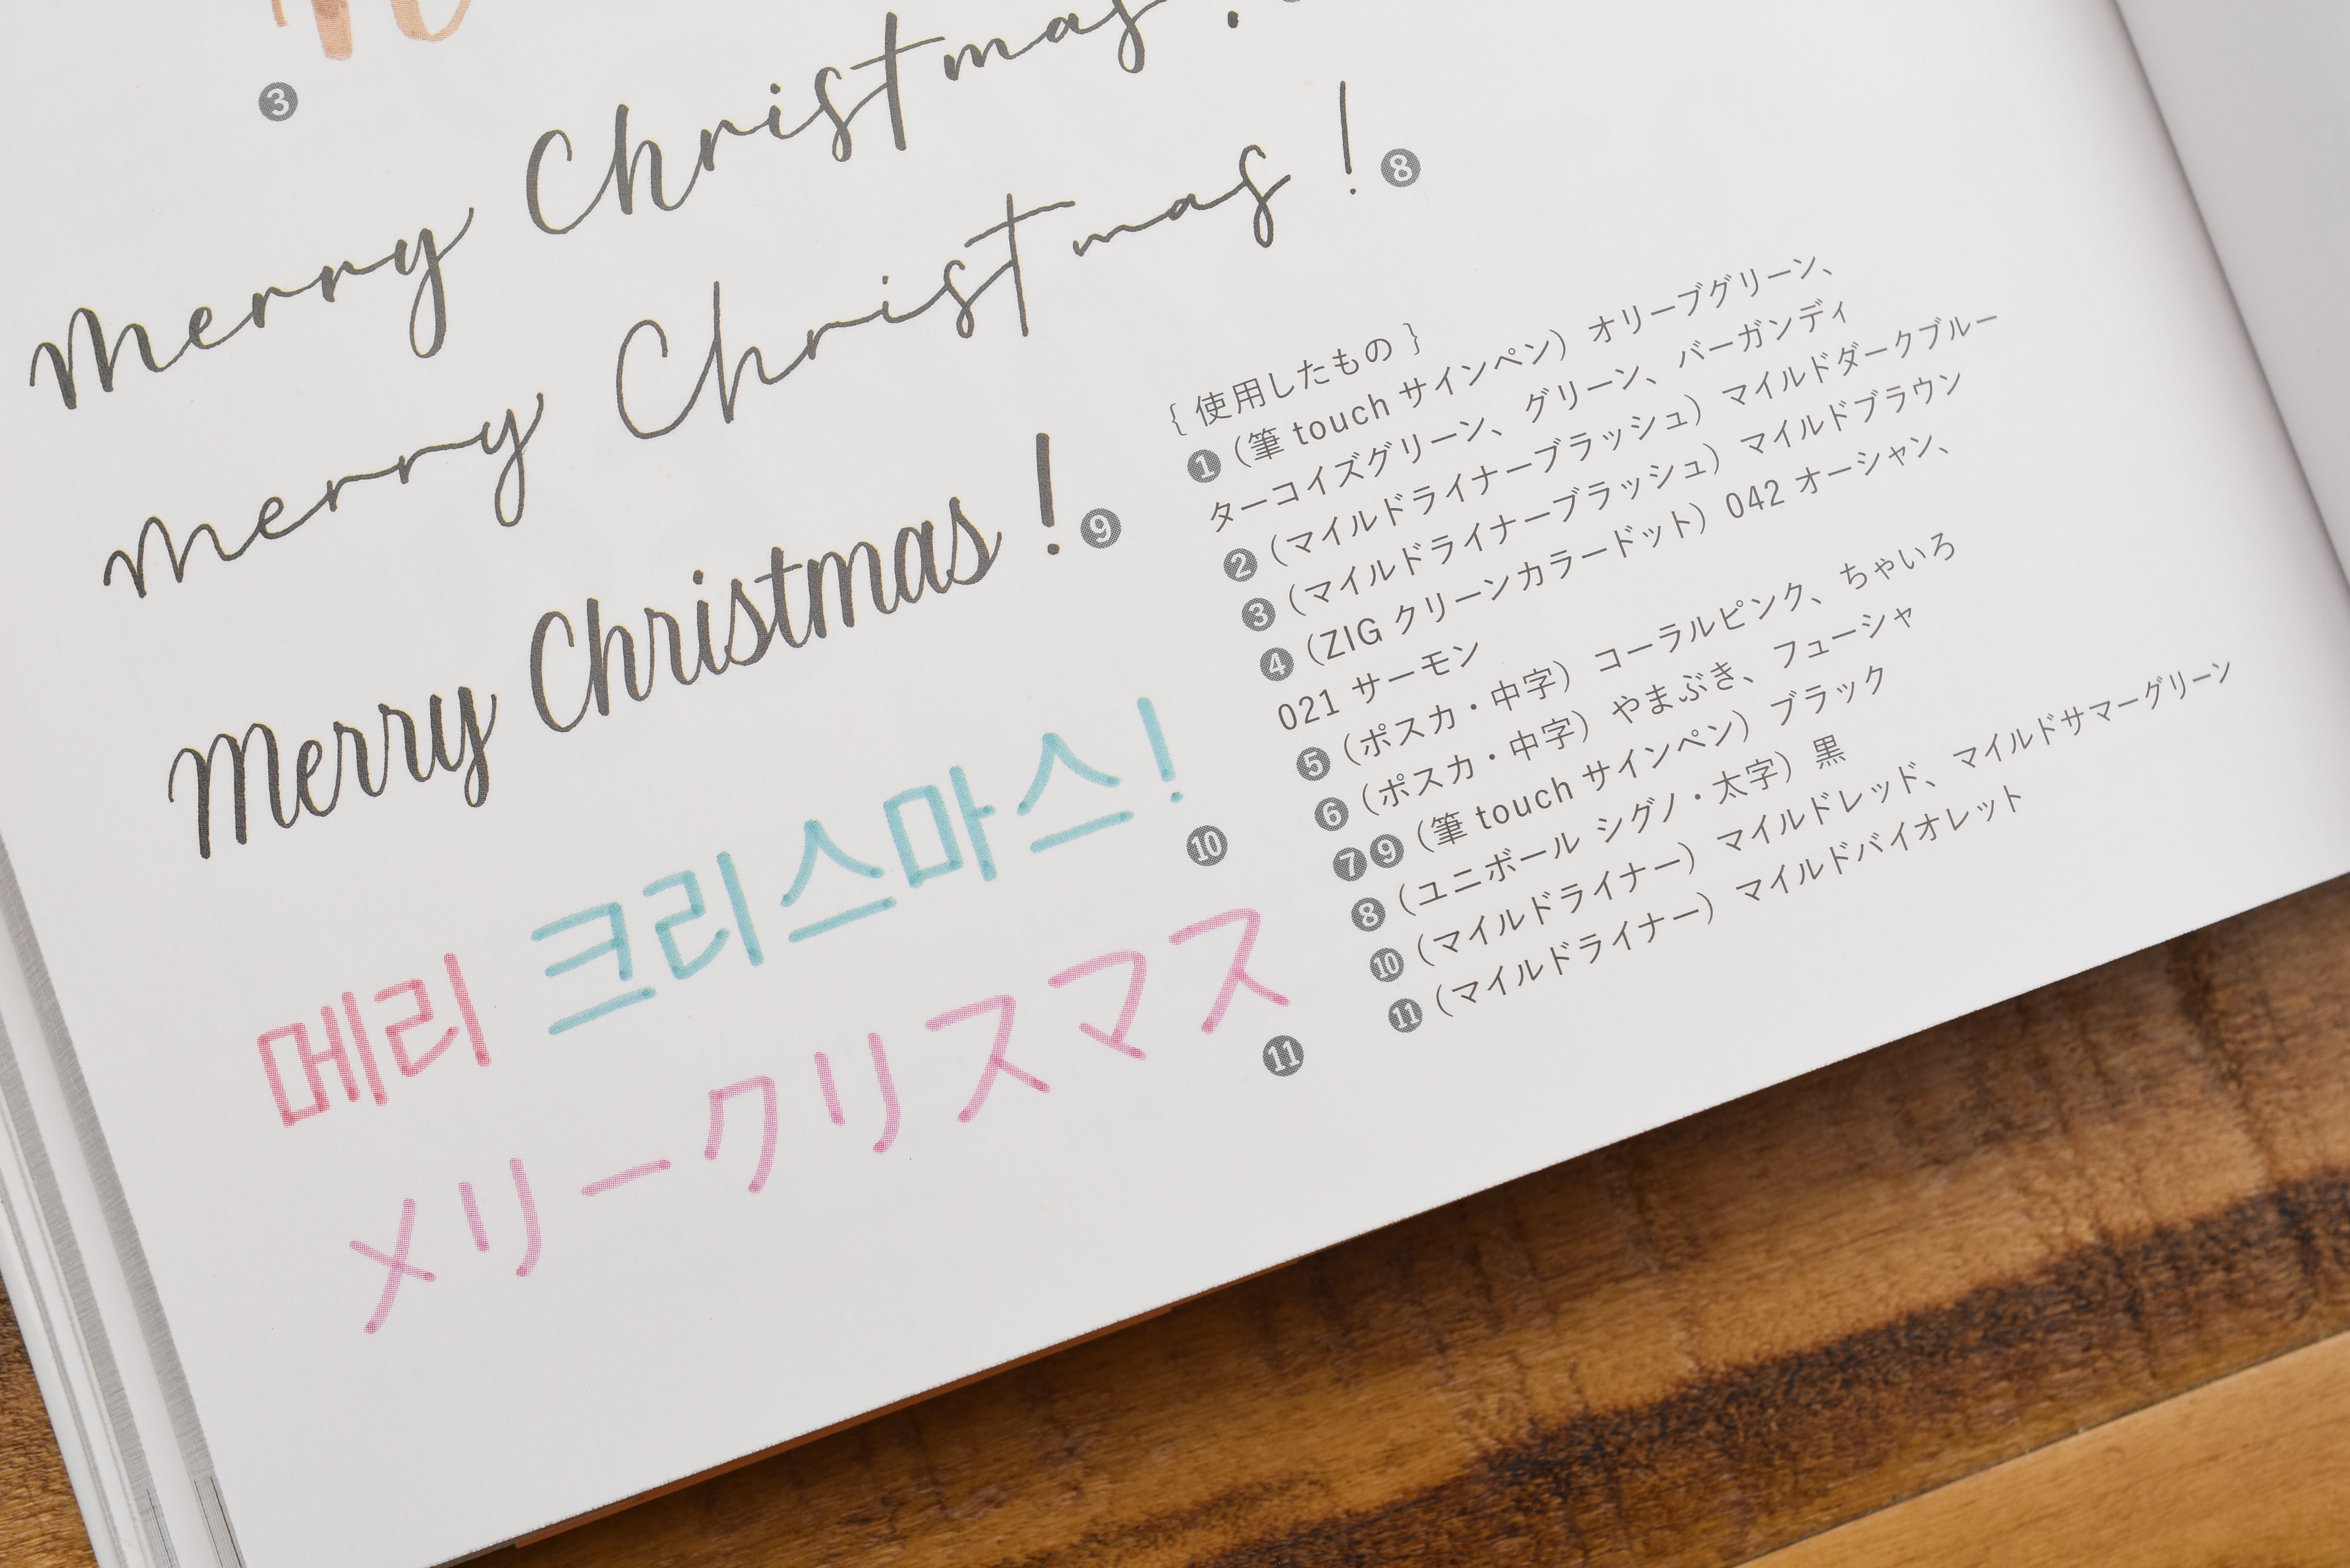 3
Merry Christmas!
Merry Christmas! 8
Merry Christmas! 9
메리 크리스마스! 10
メリークリスマス 11
{ 使用したもの }
1（筆 touch サインペン）オリーブグリーン、
ターコイズグリーン、グリーン、バーガンディ
2（マイルドライナーブラッシュ）マイルドダークブルー
3（マイルドライナーブラッシュ）マイルドブラウン
4（ZIG クリーンカラードット）042 オーシャン、
021 サーモン
5（ポスカ・中字）コーラルピンク、ちゃいろ
6（ポスカ・中字）やまぶき、フューシャ
7 9（筆 touch サインペン）ブラック
8（ユニボール シグノ・太字）黒
10（マイルドライナー）マイルドレッド、マイルドサマーグリーン
11（マイルドライナー）マイルドバイオレット